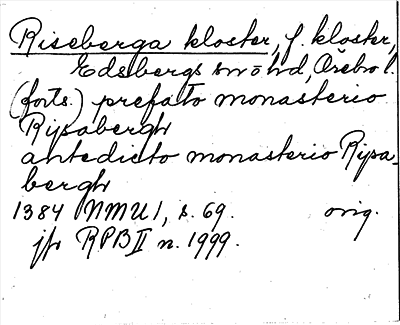 Riseberga kloster, f. kloster,
Edsbergs sn o hd, Örebro l.
(forts.) prefato monasterio
Rysabergh
antedicto monasterio Rysa-
bergh
1384 NMU 1, s. 69. orig.
jfr RPB II n. 1999.